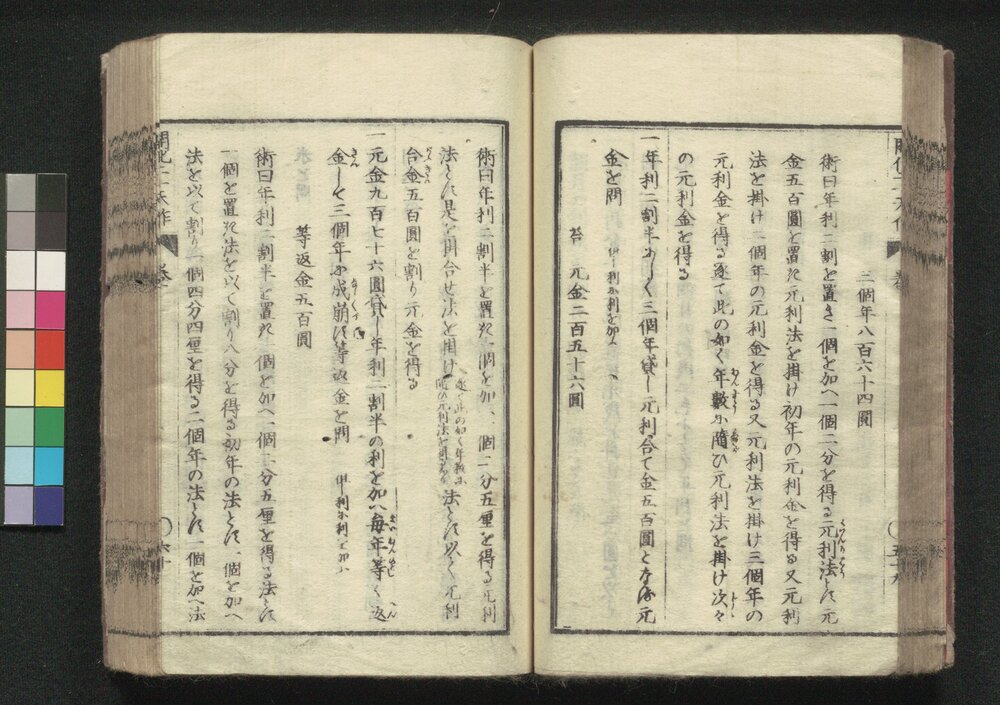 三個年八百六十四圓
術曰年利二割を置き一個を加へ一個二分を得る元利法とす元
金五百圓を置き元利法を掛け初年の元利金を得る又元利
法を掛け二個年の元利金を得る又元利法を掛け三個年の
元利金を得る逐て此の如く年數に隨ひ元利法を掛け次々
の元利金を得る
一年利二割半にして三個年貸し元利合て金五百圓となる元
金を問 但し利に利を加ふ
答 元金二百五十六圓
術曰年利二割半を置き一個を加へ一個二分五厘を得る元利
法とす是を掛合せ法を掛け 逐て此の如く年數に隨ひ元利法を掛る 法とす以て元利
合金五百圓を割り元金を得る
一元金九百七十六圓貸し年利二割半の利を加へ毎年等く返
金して三個年に成崩す等返金を問 但し利に利を加ふ
等返金五百圓
術曰年利二割半を置き一個を加へ一個二分五厘を得る法とす
一個を置き法を以て割り八分を得る初年の法とす一個を加へ
法を以て割り一個四分四厘を得る二個年の法とす一個を加へ法